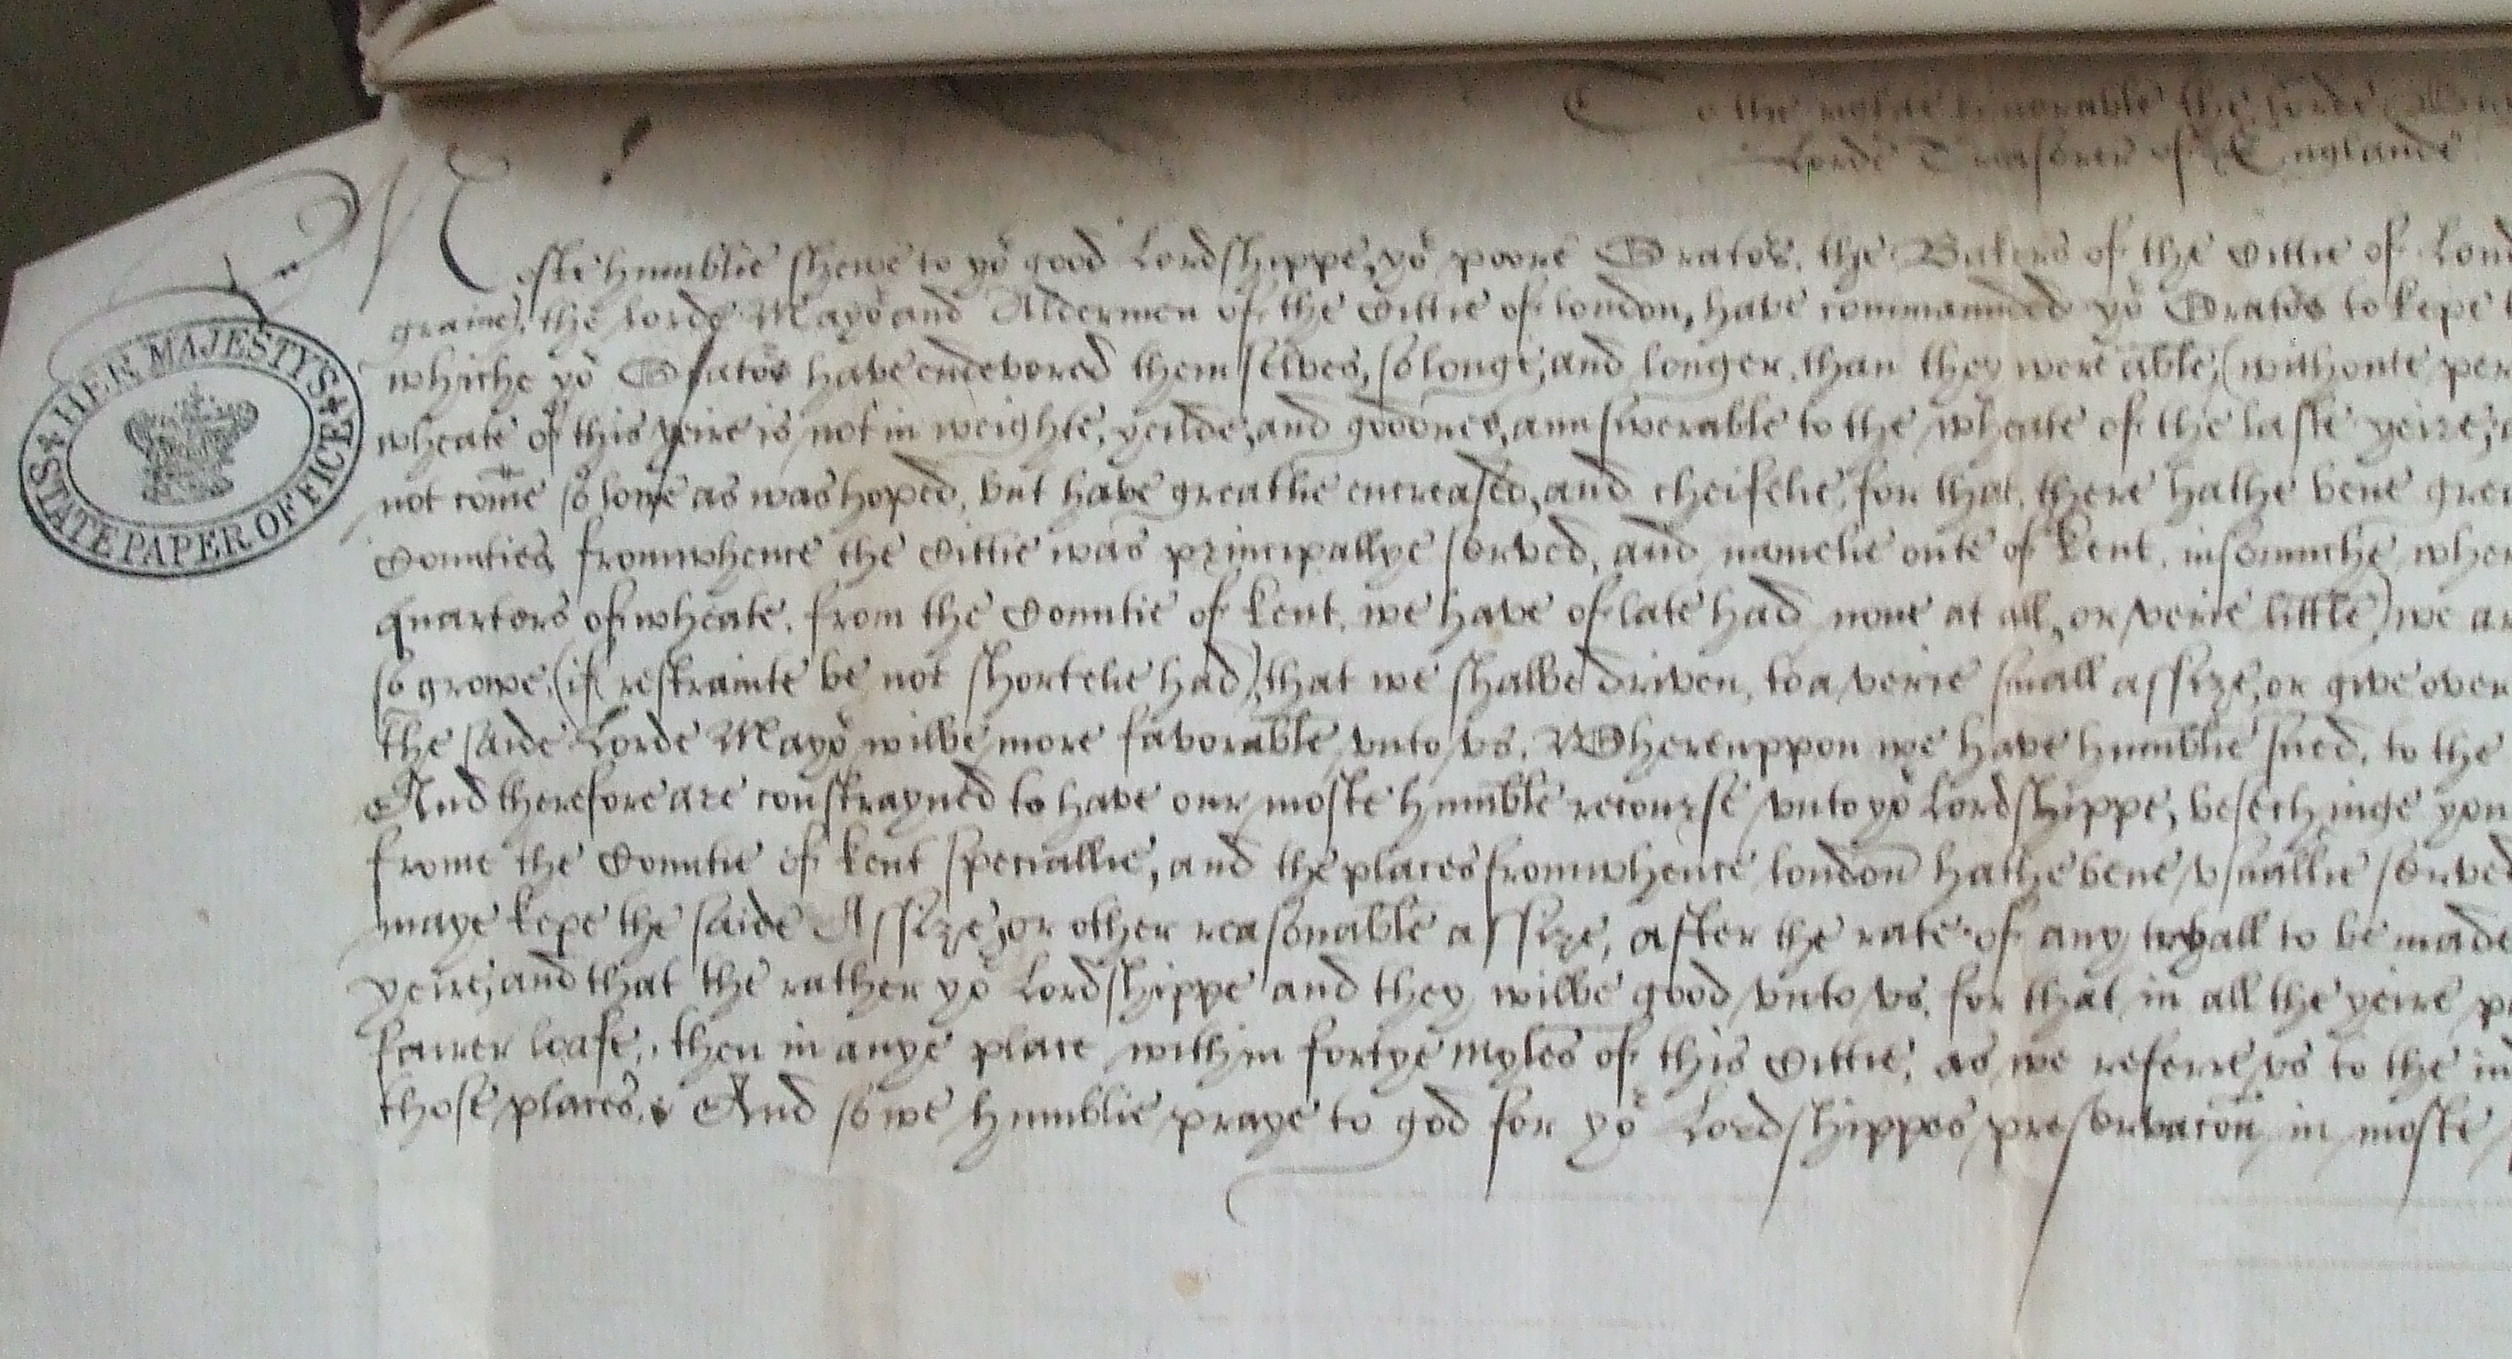 To the right honorable the Lorde
Lorde Treasorer of Englande
HER MAJESTY'S STATE PAPER OFFICE
Moste humblie shewe to yor good Lordshippe, yor poore Orators, the Bakers of the Cittie of Lond
graine, the Lorde Mayor and Aldermen of the Cittie of london, have commaunded yor Orators to kepe t
whiche yor Orators have endevored them selves, so longe, and longer, than they were able, (withoute per
wheate of this yeire is not in weighte, yeilde, and goodnes, aunswerable to the wheate of the laste yeire,
not come so lowe as was hoped, but have greatlie encreased, and cheifelie, for that, there hathe bene grea
Counties fromwhence the Cittie was principallye served, and namelie oute of Kent, insomuche wher
quarters of wheate, from the Countie of Kent, we have of late had none at all, or verie little) we ar
so growe, (if restrainte be not shortelie had), that we shalbe driven, to a verie small assize, or give over
the saide Lorde Mayor wilbe more favorable unto us. Whereuppon we have humblie sued, to the
And therefore are constrayned to have our moste humble recourse unto yor Lordshippe, besechinge you
frome the Countie of Kent speciallie, and the places fromwhence london hathe bene usuallie served
maye kepe the saide Assize, or other reasonable assize, after the rate of any tryall to be made
yeire, and that the rather yor Lordshippe and they wilbe good unto us, for that in all the yeire p
fairer loafe, then in anye place within fortye myles of this Cittie, as we referre us to the in
those places. And so we humblie praye to god for yor Lordshippes preservacon in moste